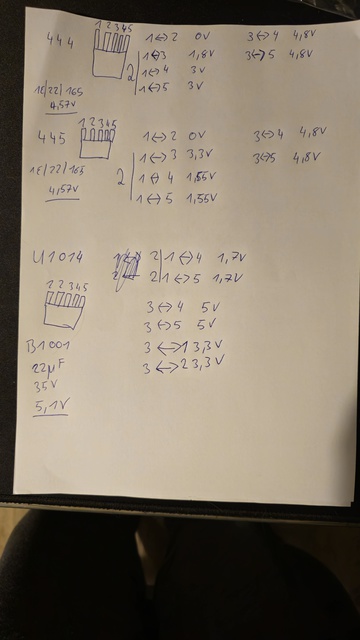 444
1 2 3 4 5
1↔2 0V
3↔4 4,8V
2 | 1↔3 1,8V
3↔5 4,8V
1↔4 3V
1↔5 3V
1E/22/165
4,57V
445
1 2 3 4 5
1↔2 0V
3↔4 4,8V
2 | 1↔3 3,3V
3↔5 4,8V
1↔4 1,55V
1↔5 1,55V
1E/22/165
4,57V
U1014
1 2 3 4 5
2| 1↔4 1,7V
2| 1↔5 1,7V
3↔4 5V
3↔5 5V
3↔1 3,3V
3↔2 3,3V
B1001
22µF
35V
5,1V